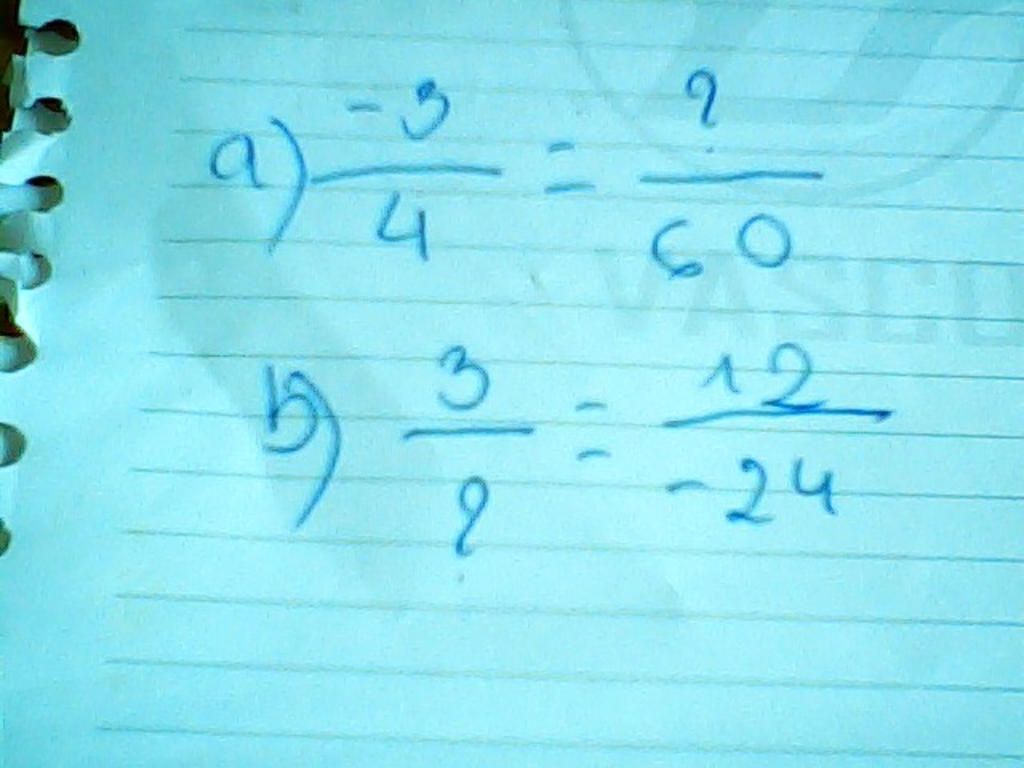 a) -3/4 = ?/60
b) 3/? = 12/-24